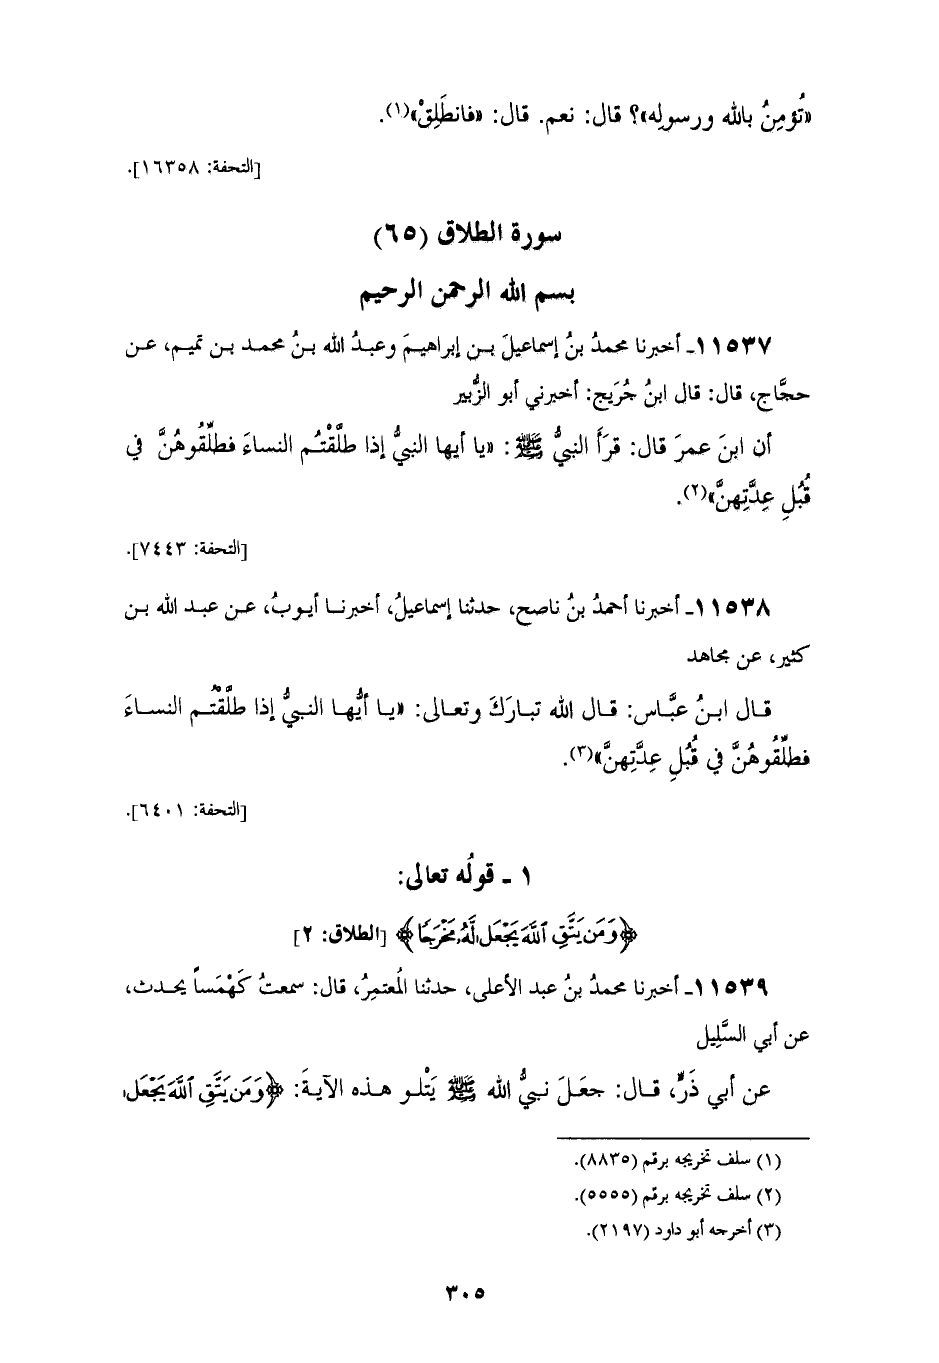 «تُؤمِنُ بالله ورسولِه»؟ قال: نعم. قال: «فانطَلِقْ»(١).
[التحفة: ١٦٣٥٨].
سورة الطلاق (٦٥)
بسم الله الرحمن الرحيم
١١٥٣٧ـ أخبرنا محمدُ بنُ إسماعيلَ بـن إبراهيـمَ وعبـدُ الله بـنُ محمـد بـن تميـم، عـن
حجَّاج، قال: قال ابنُ جُرَيج: أخبرني أبو الزُّبير
أن ابنَ عمرَ قال: قرَأَ النبيُّ ﷺ: «يا أيها النبيُّ إذا طلَّقْتُـم النساءَ فطلِّقُوهُنَّ في
قُبُلِ عِدَّتِهنَّ»(٢).
[التحفة: ٧٤٤٣].
١١٥٣٨ـ أخبرنا أحمدُ بنُ ناصح، حدثنا إسماعيلُ، أخبرنـا أيـوبُ، عـن عبـد الله بـن
كثير، عن مجاهد
قـال ابـنُ عبَّـاس: قـال الله تبـارَكَ وتعـالى: «يـا أيُّهـا النـبيُّ إذا طلَّقْتُـم النسـاءَ
فطلِّقُوهُنَّ في قُبُلِ عِدَّتِهنَّ»(٣).
[التحفة: ٦٤٠١].
١ ـ قولُه تعالى:
﴿وَمَن يَتَّقِ ٱللَّهَ يَجْعَل لَّهُۥ مَخْرَجًا﴾ [الطلاق: ٢]
١١٥٣٩ـ أخبرنا محمدُ بنُ عبد الأعلى، حدثنا المُعتمِرُ، قال: سمعتُ كَهْمَساً يحـدث،
عن أبي السَّلِيل
عن أبي ذَرٍّ، قـال: جعَـلَ نـبيُّ الله ﷺ يَتْلـو هـذه الآيـةَ: ﴿وَمَن يَتَّقِ ٱللَّهَ يَجْعَل
(١) سلف تخريجه برقم (٨٨٣٥).
(٢) سلف تخريجه برقم (٥٥٥٥).
(٣) أخرجه أبو داود (٢١٩٧).
٣٠٥